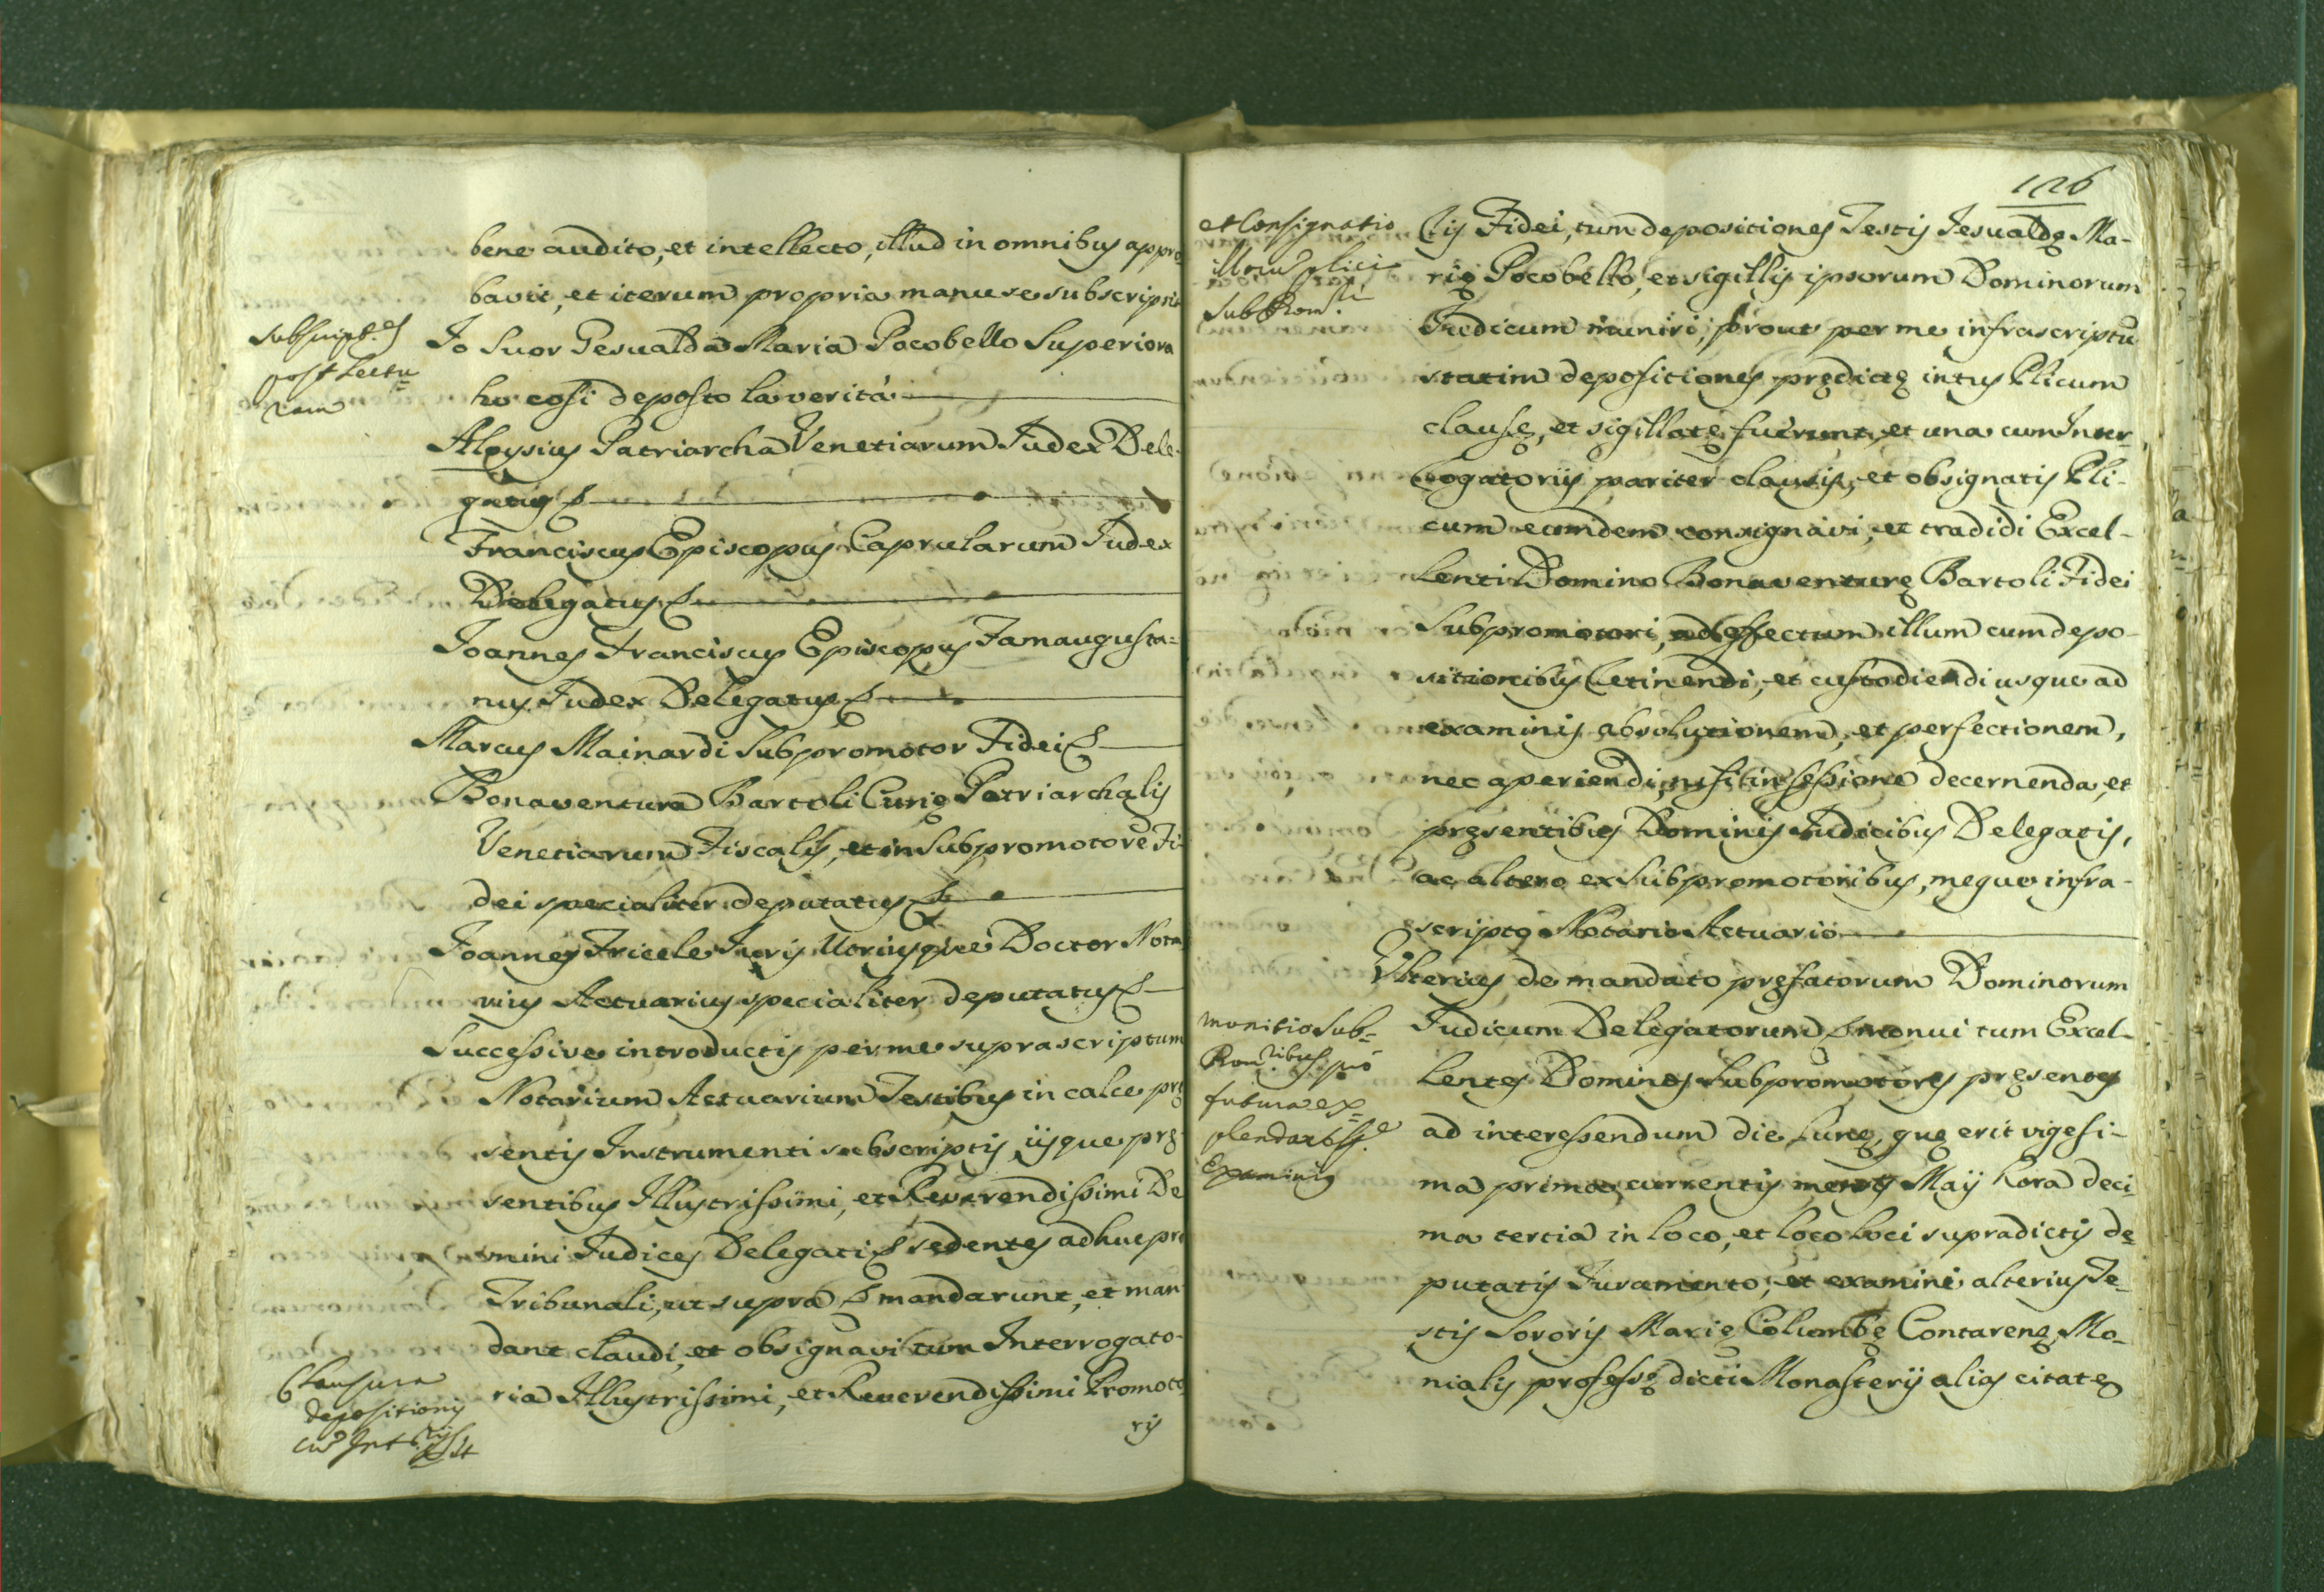 bene audito, et intellecto, illud in omnibus appro-
bavit, et iterum propria manu se subscripsit
subscript.es
post lectu=
ram
Io Suor Gesualda Maria Pocobello Superiora
ho cosi deposto la verità
Aloysius Patriarcha Venetiarum Iudex Dele-
gatus
Franciscus Episcopus Caprularum Iudex
Delegatus
Ioannes Franciscus Episcopus Famaugusta=
nus Iudex Delegatus
Marcus Mainardi Subpromotor Fidei
Bonaventura Bartoli Curię Patriarchalis
Venetiarum Fiscalis, et in Subpromotorē Fi-
dei specialiter deputatus
Ioannes Fricele Iuris Utriusque Doctor Nota
rius Actuarius specialiter deputatus
Successive introductis per me suprascriptum
Notarium Actuarium Testibus in calce prę
sentis Instrumenti subscriptis, ijsque prę-
sentibus Illustrissimi, et Reverendissimi Do
mini Iudices Delegati sedentes adhuc pro
Tribunali, ut supra mandarunt, et man
dant claudi, et obsignari tum Interrogato-
Clausura
depositionis
cū Int.rijs
ria Illustrissimi, et Reverendissimi Promoto
ris
126
et Consignatio
illorū plici
subProm.ri
ris Fidei, tum depositiones Testis Iesualdę Ma-
rię Pocobello, et sigillis ipsorum Dominorum
Iudicum muniri, prout per me infrascriptū
statim depositiones prędictę intus Plicum
clausę, et sigillatę fuerunt, et una cum Inter-
rogatorijs pariter clausis, et obsignatis Pli-
cum eumdem consignavi, et tradidi Excel-
lenti Domino Bonaventurę Bartoli Fidei
Subpromotori, ad effectum illum cum depo-
sitionibus retinendi, et custodiendi usque ad
examinis absolutionem, et perfectionem,
nec aperiendi, nisi in sessione decernenda, et
pręsentibus Dominis Iudicibus Delegatis,
ac altero ex Subpromotoribus, meque infra-
scripto Notario Actuario
Ulterius de mandato pręfatorum Dominorum
monitio Sub=
Prom.ribus pro
futura ex=
plenda sess.e
Examinis
Iudicum Delegatorum monui tum Excel-
lentes Dominos Subpromotores pręsentes
ad interessendum die Lunę, quę erit vigesi-
ma prima currentis mensis Maij hora deci-
ma tertia in loco, et loco loci supradictis de
putatis Iuramento, et examini alterius Te-
stis Sororis Marię Columbę Contarenę Mo-
nialis professę dicti Monasterij alias citatę